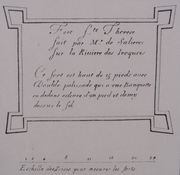 Fort Ste Therese
fait par Mr. de Salieres
sur la Riviere des Iroquois
Ce fort est haut de 15 pieds avec
Double palissade qui a une banquette
en dedans eslevée d'un pied et demy
dessus le sol
Eschelle de Toises pour mesurer les forts